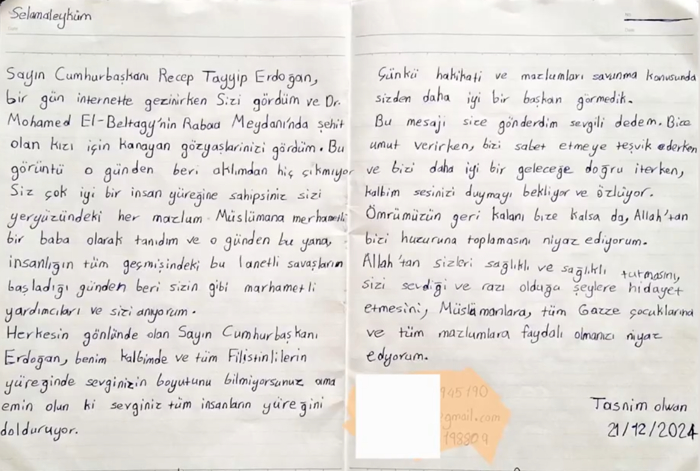 Selamaleyküm
Sayın Cumhurbaşkanı Recep Tayyip Erdoğan,
bir gün internette gezinirken Sizi gördüm ve Dr.
Mohamed El-Beltagy'nin Rabaa Meydanı'nda şehit
olan kızı için kanayan gözyaşlarinizi gördüm. Bu
görüntü o günden beri aklımdan hiç çıkmıyor
Siz çok iyi bir insan yüreğine sahipsiniz sizi
yeryüzündeki her mazlum Müslümana merhametli
bir baba olarak tanıdım ve o günden bu yana,
insanlığın tüm geçmişindeki bu lanetli savaşların
başladığı günden beri sizin gibi marhametli
yardımcıları ve sizi anıyorum.
Herkesin gönlünde olan Sayın Cumhurbaşkanı
Erdoğan, benim kalbimde ve tüm Filistinlilerin
yüreğinde sevginizin boyutunu bilmiyorsunuz ama
emin olun ki sevginiz tüm insanların yüreğini
dolduruyor.
Çünkü hakikati ve mazlumları savunma konusunda
sizden daha iyi bir başkan görmedik.
Bu mesajı size gönderdim sevgili dedem. Bize
umut verirken, bizi sabet etmeye teşvik ederken
ve bizi daha iyi bir geleceğe doğru iterken,
kalbim sesinizi duymayı bekliyor ve özlüyor.
Ömrümüzün geri kalanı bize kalsa da, Allah'tan
bizi huzuruna toplamasını niyaz ediyorum.
Allah'tan sizleri sağlıklı ve sağlıklı tutmasını,
sizi sevdiği ve razı olduğu şeylere hidayet
etmesini, Müslümanlara, tüm Gazze çocuklarına
ve tüm mazlumlara faydalı olmanızı niyaz
ediyorum.
945190
@gmail.com
193809
Tasnim olwan
21/12/2024